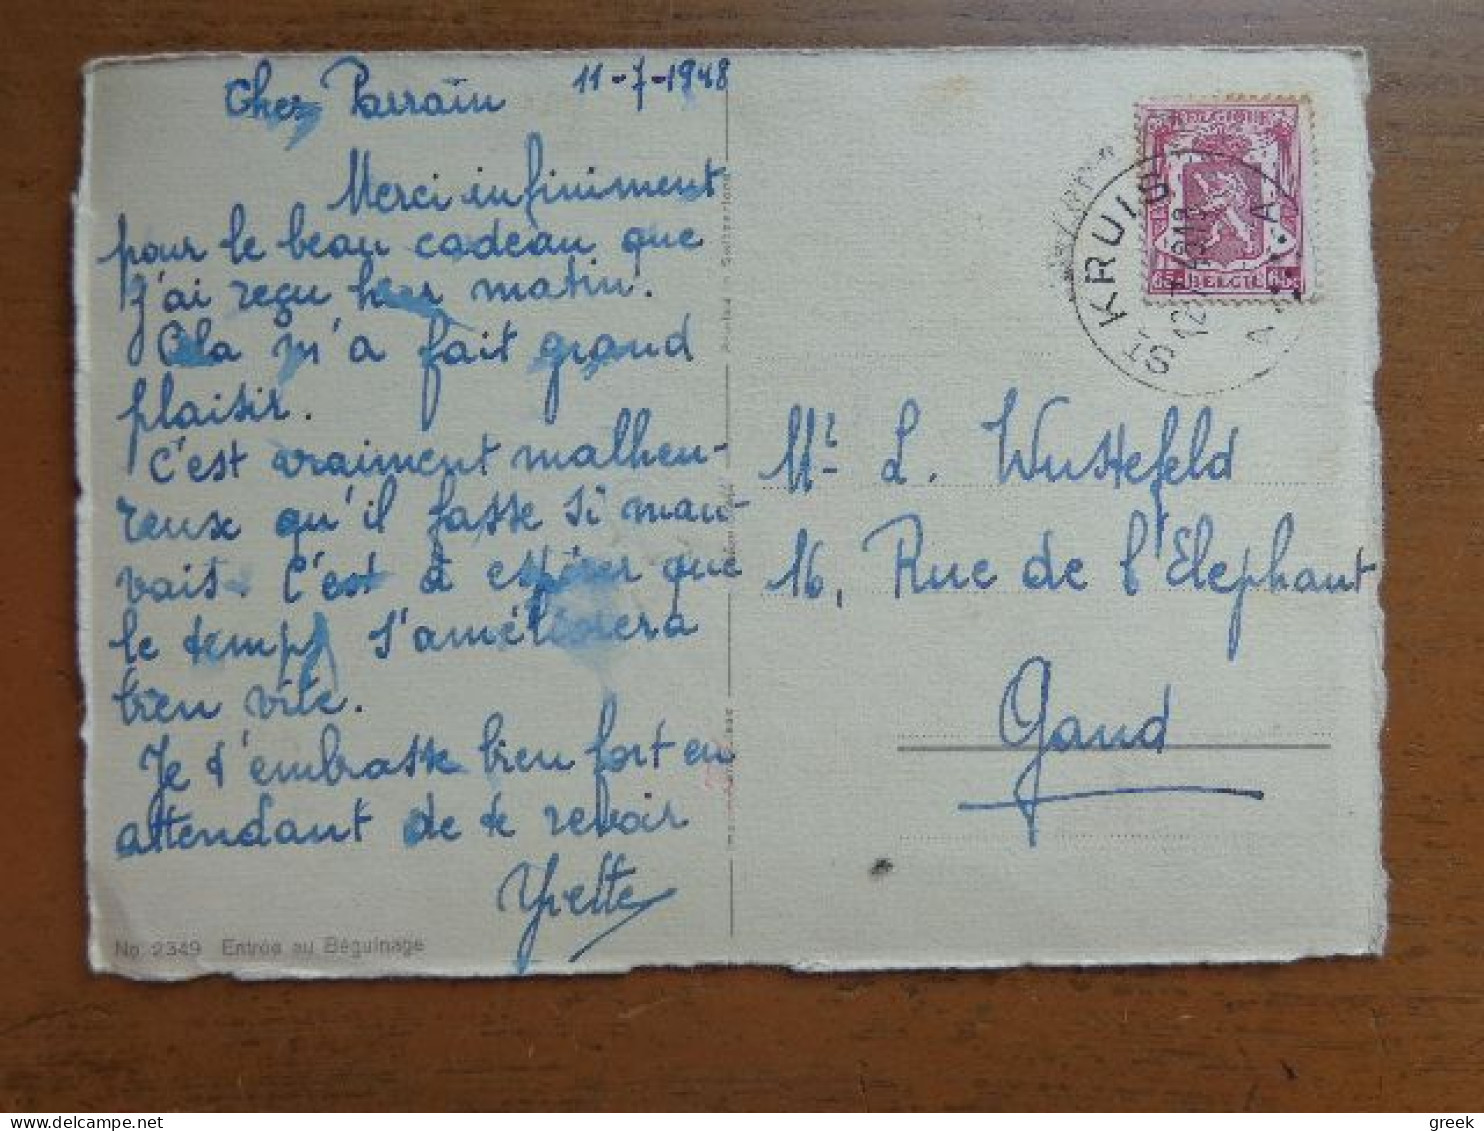 Cher Parrain 11-7-1948
Merci infiniment
pour le beau cadeau que
j'ai reçu hier matin!
Cela m'a fait grand
plaisir.
C'est vraiment malheu-
reuse qu'il fasse si mau-
vait. C'est à espérer que
le temps s'améliorera
bien vite.
Je t'embrasse bien fort en
attendant de te revoir
Yvette
No. 2349 Entrée au Béguinage
BELGIQUE
65c BELGIE 65c
ST KRUIS
A
Mr L. Wustefeld
16, Rue de l'Elephant
Gand
greek
delcampe.net